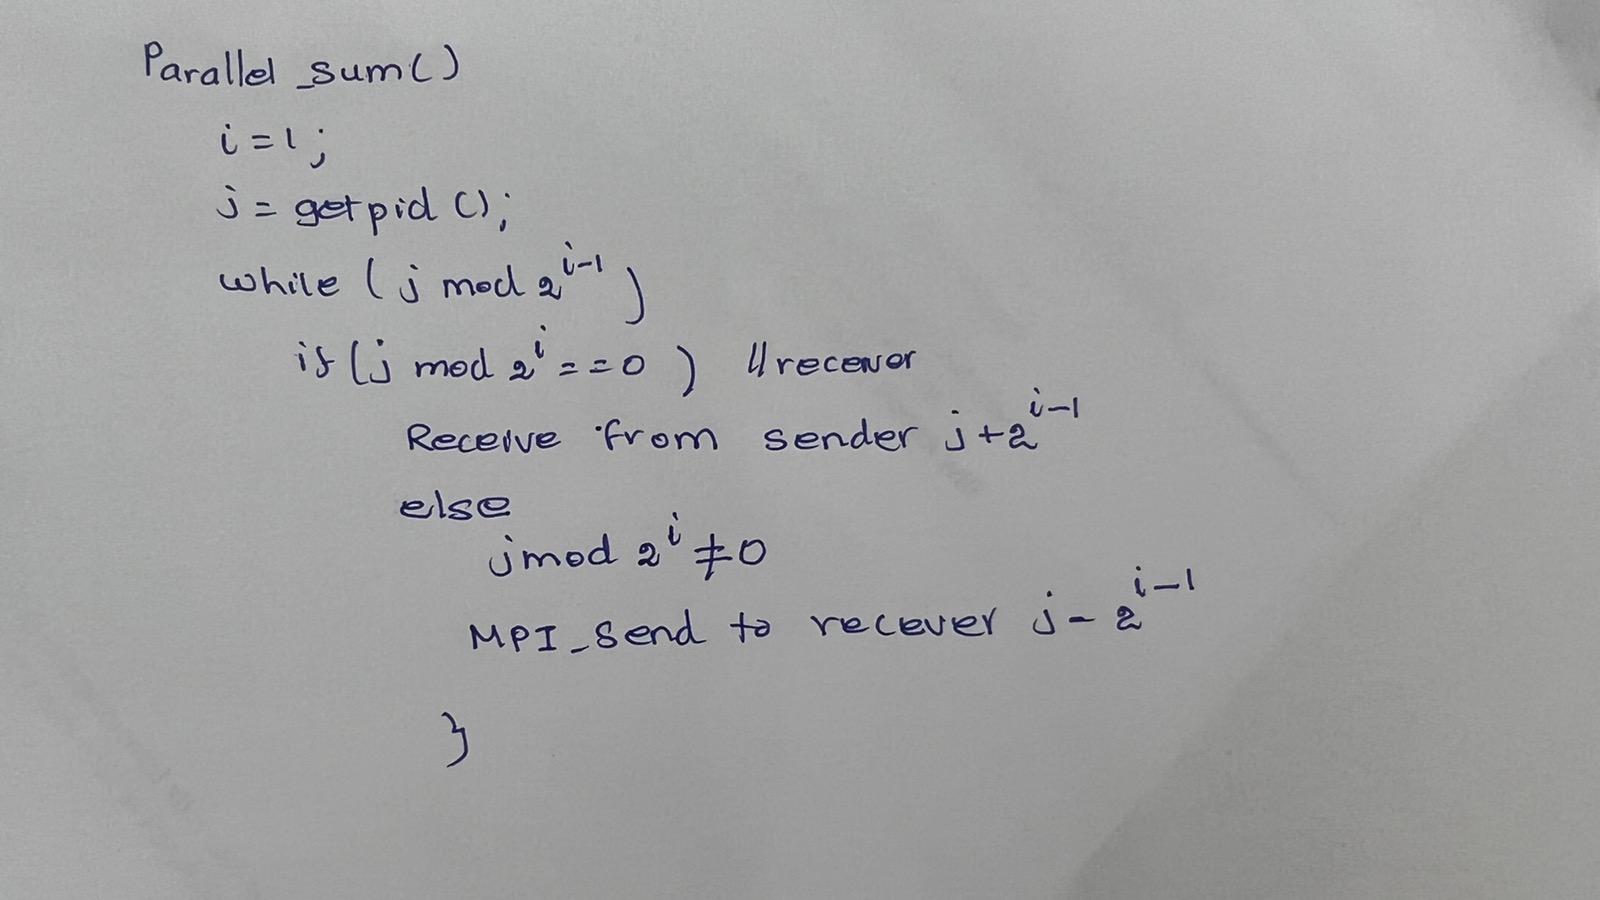 Parallel_sum()
i=1;
j=getpid();
while (j mod 2^{i-1})
if (j mod 2^i ==0) //recever
Receive from sender j+2^{i-1}
else
j mod 2^i ≠0
MPI_Send to recever j-2^{i-1}
}